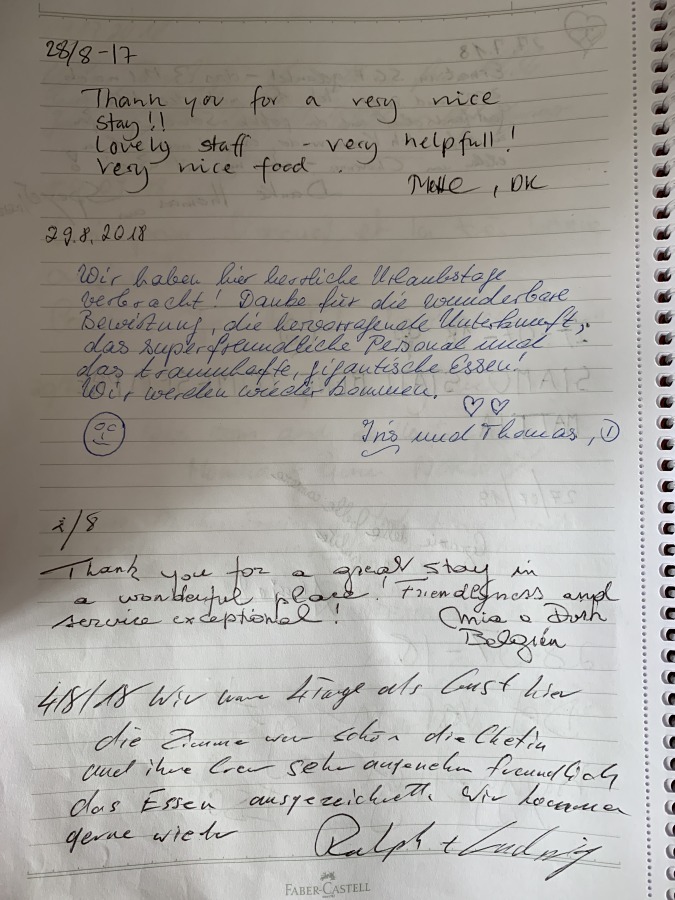 28/8-17
Thank you for a very nice
stay!!
Lovely staff - very helpfull!
very nice food.
Mette, DK
29.8.2018
Wir haben hier herrliche Urlaubstage
verbracht! Danke für die wunderbare
Bewirtung, die hervorragende Unterkunft,
das superfreundliche Personal und
das traumhafte, gigantische Essen!
Wir werden wieder kommen.
Iris und Thomas,
/8
Thank you for a great stay in
a wonderful place! Friendlyness and
service exceptional!
Belgien
4/8/18 Wir waren 4 Tage als Gast hier
die Zimmer war schön die Chefin
und ihre Crew sehr angenehm freundlich
das Essen ausgezeichnet. Wir kommen
gerne wieder
Ralph + Ludwig
FABER-CASTELL